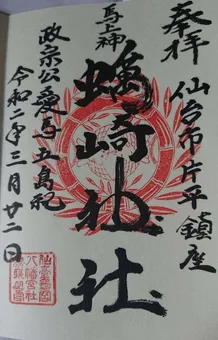 奉拝
仙台市片平鎮座
馬上神
蠣崎神社
政宗公愛馬五島祀
令和二年三月廿二日